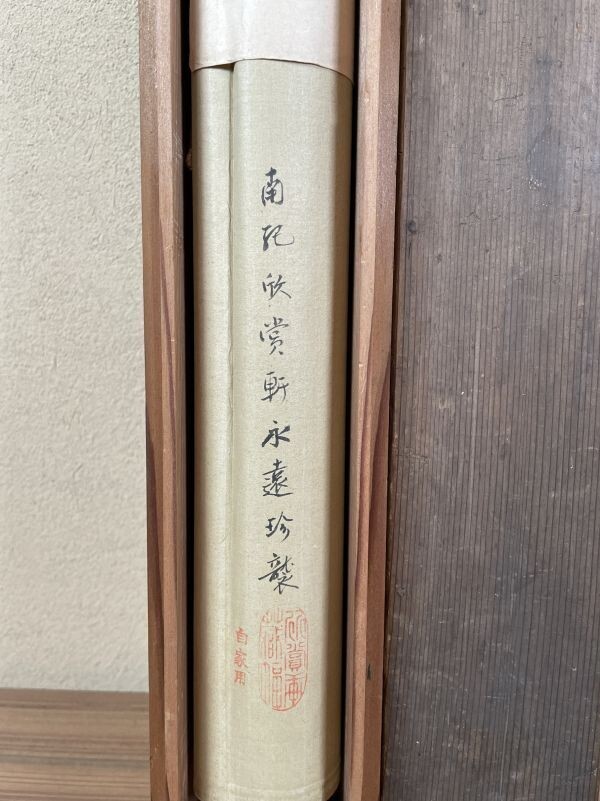 南紀欣賞軒永遠珍襲
自家用